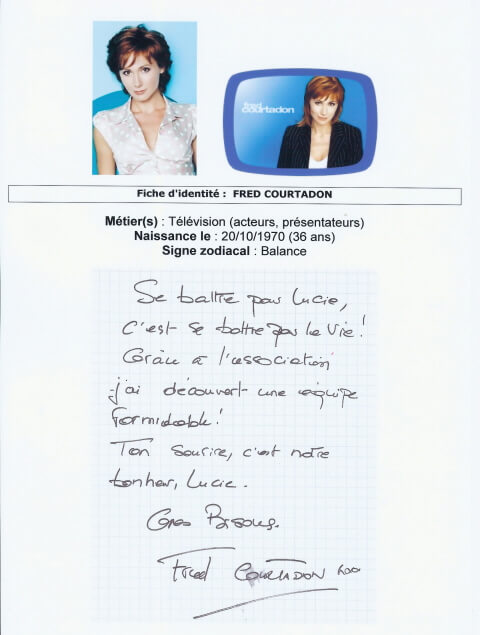 fred
courtadon
Fiche d'identité : FRED COURTADON
Métier(s) : Télévision (acteurs, présentateurs)
Naissance le : 20/10/1970 (36 ans)
Signe zodiacal : Balance
Se battre pour Lucie,
c'est se battre pour la Vie!
Grâce à l'association
j'ai découvert une équipe
Formidable!
Ton sourire, c'est notre
bonheur, Lucie.
Gros Bisous.
Fred COURTADON